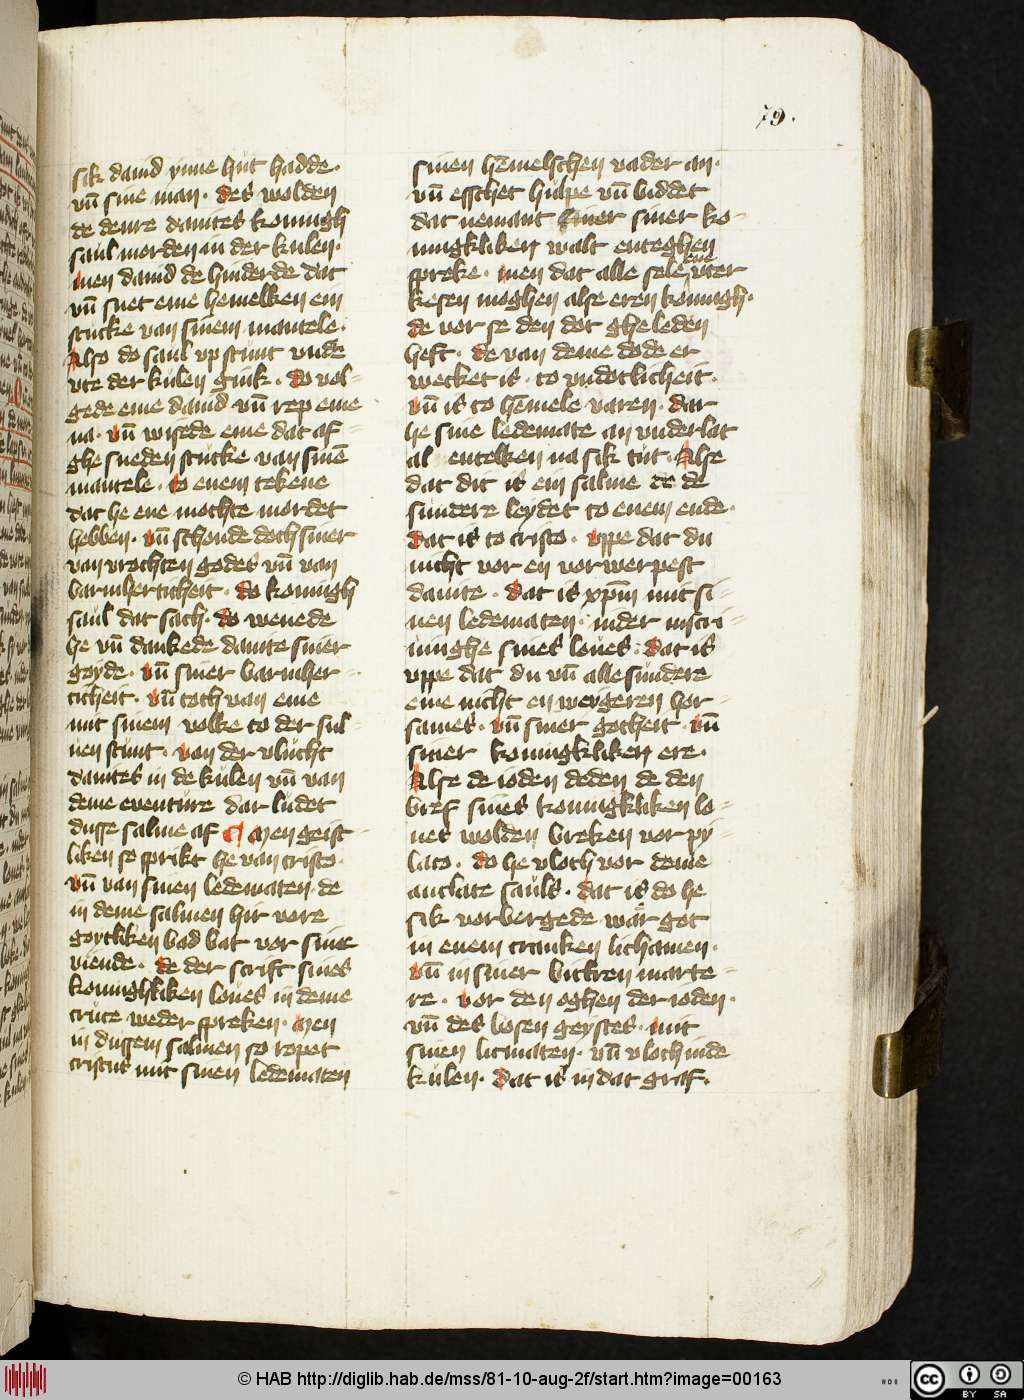 79.
sik dauid ynne hut hadde·
vn̄ sine man· des wolden
de denre dauites konnigh
saul morden in der kulen·
men dauid de hinderde dat
vn̄ snet eme hemelken ein
stucke van sinem mantele·
Also do saul vp stunt vnde
vte der kulen gink· do vol=
gede eme dauid vn̄ rep eme
na· vn̄ wisede eme dat af=
ghe sneden stucke van sinē
mantele· to enem tekene
dat he ene mochte mordet
hebben· vn̄ schonde doch siner
van vrochten godes vn̄ van
barmherticheit· do konnigh
saul dat sach· do wenede
he vn̄ dankede dauite siner
goyde· vn̄ siner barmher=
ticheit· vn̄ toch van eme
mit sinem volke to der sul=
uen stunt· van der vlucht
dauites in de kulen vn̄ van
deme euenture dar ludet
dusse salme af ¶ Men geist=
liken so sprikt he van cristo·
vn̄ van sinen ledematen· de
in deme salmen hir vore
goytliken bad bat vor sine
viende· de der scrift sines
konnighliken loues in deme
cruce weder spreken· men
in dussem salmen so ropet
cristus mit sinen ledematen
sinen hemelschen vader an·
vn̄ esschet hulpe vn̄ biddet
dat nemant siner siner ko=
ningkliken walt enteghen
spreke· men dat alle sele ene vter
kesen moghen alse eren konnigh·
de vor se den dot ghe leden
heft· de van deme dode er
wecket is· to vndotlicheit·
vn̄ is to hēmele varen· dar
he sine ledemate an vnderlat
al entelken na sik tut· Alse
dat dit is ein salme de de
sundere leydet to enem ende·
dat is to cristo· vppe dat du
nicht vor en vorwerpest
dauite· dat is xpm̄ mit si=
nen ledematen· in der inscri=
ninghe sines loues· dat is
vppe dat du vn̄ alle sundere
eme nicht en weygeren hor=
sames· vn̄ siner gotheit· vn̄
siner konningkliken ere·
Alse de ioden deden de den
bref sines konnigkliken lo=
ues wolden breken vor py=
lato· do he vloch vor deme
anclate sauls· dat is do he
sik vorbergede war got
in enem cranken lichamen·
vn̄ in siner bickren marte=
re· vor den oghen der ioden·
vn̄ des bosen geystes· mit
sinen litmaten· vn̄ vloch in de
kulen· dat is in dat graf·
© HAB http://diglib.hab.de/mss/81-10-aug-2f/start.htm?image=00163
HAB
cc
BY SA